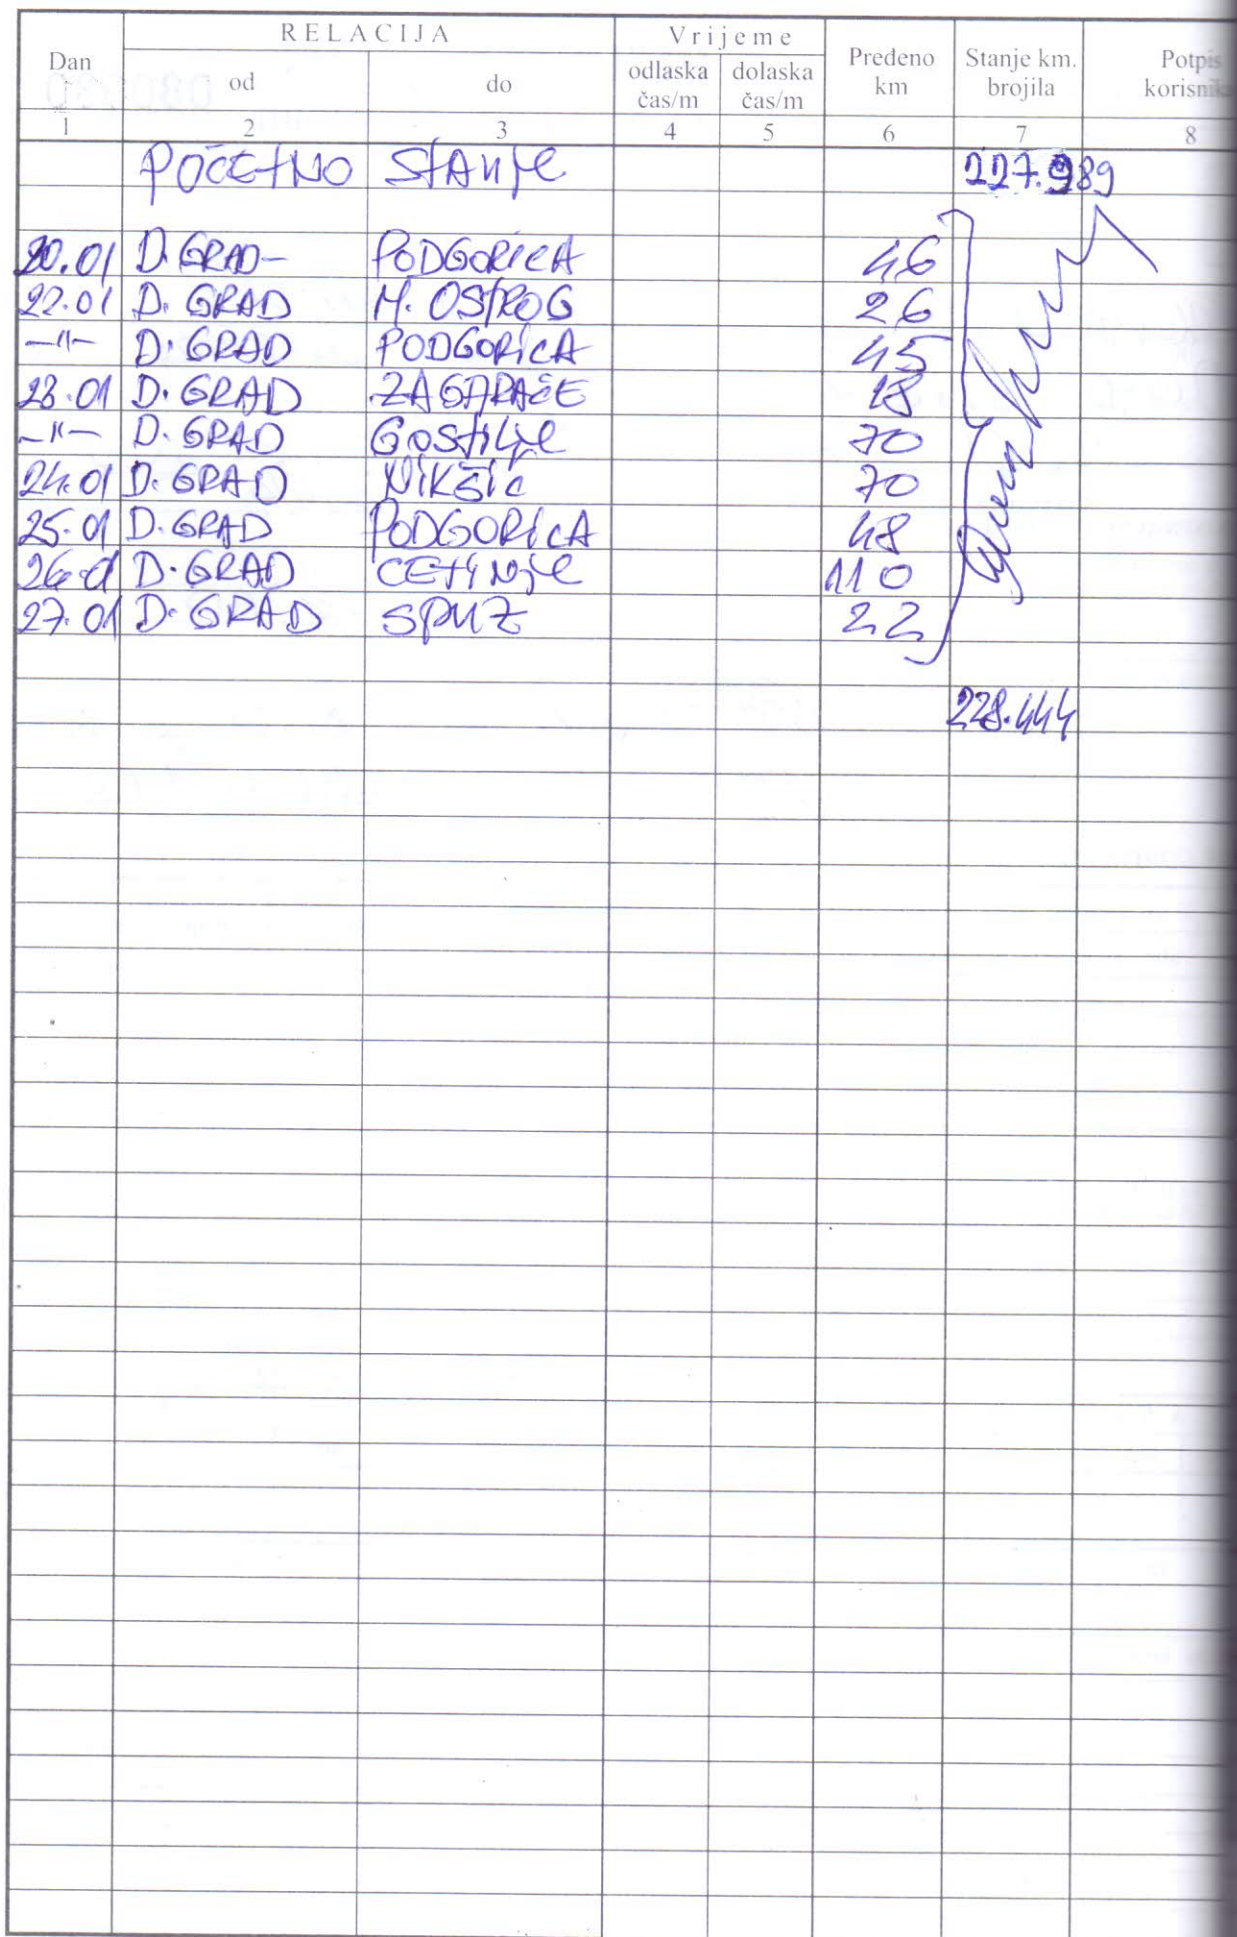 RELACIJA Vrijeme
Dan od do odlaska čas/m dolaska čas/m Pređeno km Stanje km. brojila Potpis korisnika
1 2 3 4 5 6 7 8
POČETNO STANJE 227.989
20.01 D. GRAD- PODGORICA 46
22.01 D. GRAD M. OSTROG 26
-"- D. GRAD PODGORICA 45
23.01 D. GRAD ZAGARAČE 18
-"- D. GRAD GOSTILJE 70
24.01 D. GRAD NIKŠIĆ 70
25.01 D. GRAD PODGORICA 48
26.01 D. GRAD CETINJE 110
27.01 D. GRAD SPUŽ 22
228.444